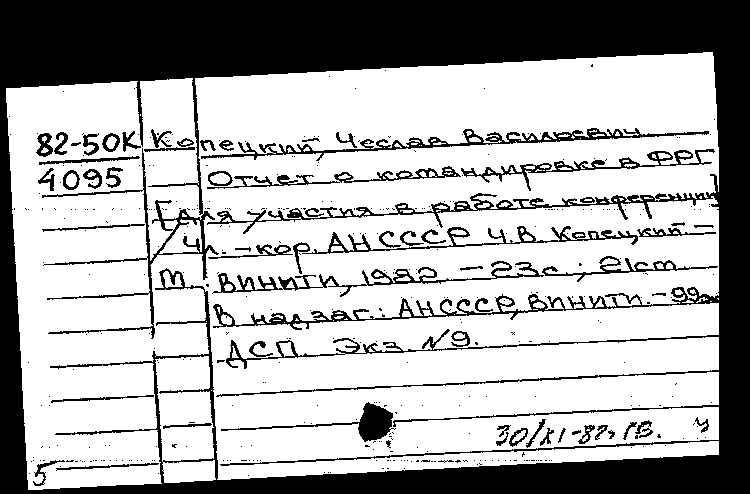 82-50К Копецкий, Чеслав Васильевич
4095 Отчет о командировке в ФРГ
[для участия в работе конференции]
/ Чл.-кор. АН СССР Ч.В. Копецкий. -
М.: ВИНИТИ, 1982. - 23с.; 21см.
В надзаг.: АН СССР, ВИНИТИ. - 99
ДСП. Экз. №9.
30/XI-82г. ГВ. ч
5